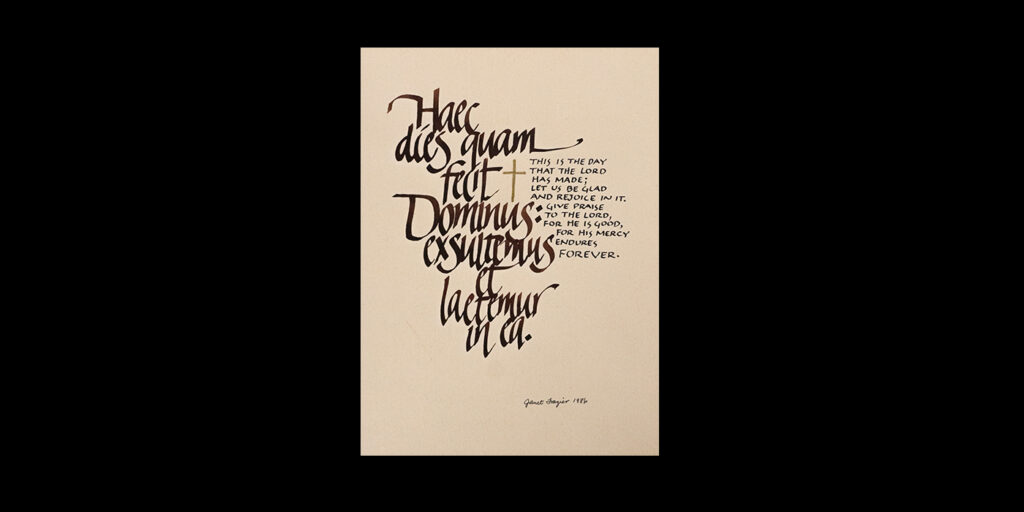 Haec
dies quam
fecit
Dominus:
exsultemus
et
laetemur
in ea.
THIS IS THE DAY
THAT THE LORD
HAS MADE;
LET US BE GLAD
AND REJOICE IN IT.
GIVE PRAISE
TO THE LORD,
FOR HE IS GOOD,
FOR HIS MERCY
ENDURES
FOREVER.
Janet Frazier 1986